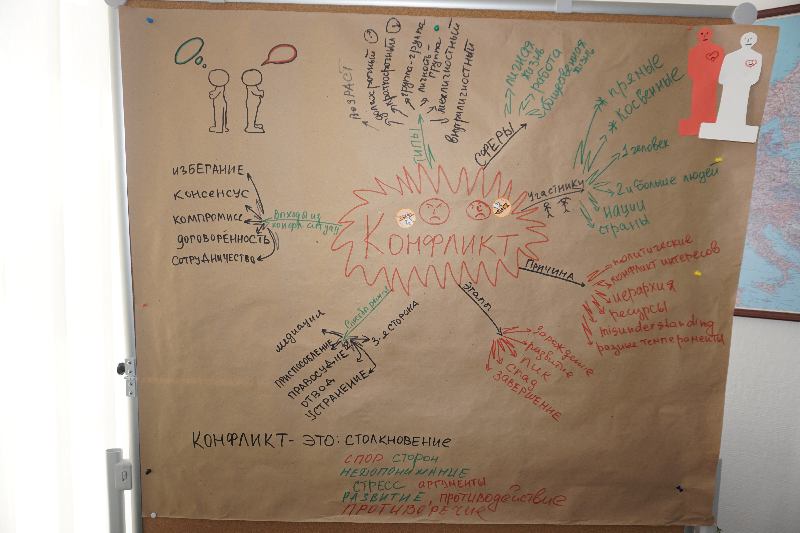 ВОЗРАСТ
долгосрочный
краткосрочный
группа-группа
личность-
группа
межличностный
внутриличностный
ТИПЫ
СФЕРЫ
личная
жизнь
работа
общественная
жизнь
УЧАСТНИКИ
* прямые
* косвенные
1 человек
2 и больше людей
нации
страны
ИЗБЕГАНИЕ
КОНСЕНСУС
КОМПРОМИСС
ДОГОВОРЁННОСТЬ
СОТРУДНИЧЕСТВО
Выход из
конфл. ситуации
КОНФЛИКТ
ПРИЧИНА
политические
конфликт интересов
иерархия
ресурсы
misunderstanding
разные темпераменты
ЭТАПЫ
зарождение
развитие
пик
спад
ЗАВЕРШЕНИЕ
медиации
ПРИСПОСОБЛЕНИЕ
ПРАВОСУДИЕ
ОТВОД
УСТРАНЕНИЕ
3-я СТОРОНА
КОНФЛИКТ - ЭТО: СТОЛКНОВЕНИЕ
СПОР СТОРОН
НЕДОПОНИМАНИЕ
СТРЕСС АРГУМЕНТЫ
РАЗВИТИЕ, ПРОТИВОДЕЙСТВИЕ
ПРОТИВОРЕЧИЕ